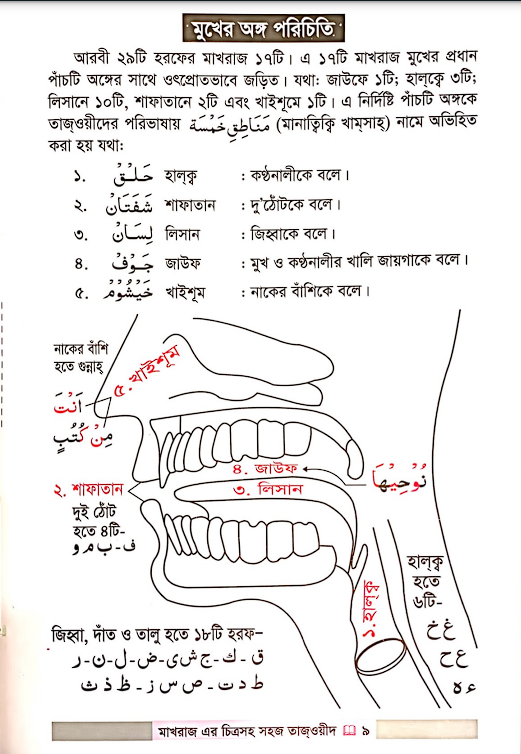 মুখের অঙ্গ পরিচিতি
আরবী ২৯টি হরফের মাখরাজ ১৭টি। এ ১৭টি মাখরাজ মুখের প্রধান
পাঁচটি অঙ্গের সাথে ওৎপ্রোতভাবে জড়িত। যথা: জাউফে ১টি; হাল্‌ক্বে ৩টি;
লিসানে ১০টি, শাফাতানে ২টি এবং খাইশূমে ১টি। এ নির্দিষ্ট পাঁচটি অঙ্গকে
তাজ্‌ওয়ীদের পরিভাষায় مَنَاطِقِ خَمْسَة (মানাত্বিক্বি খাম্‌সাহ্) নামে অভিহিত
করা হয় যথা:
১. حَلْقٌ হাল্‌ক্ব : কণ্ঠনালীকে বলে।
২. شَفَتَانْ শাফাতান : দু'ঠোঁটকে বলে।
৩. لِسَانْ লিসান : জিহ্বাকে বলে।
৪. جَوْفْ জাউফ : মুখ ও কণ্ঠনালীর খালি জায়গাকে বলে।
৫. خَيْشُوْمْ খাইশূম : নাকের বাঁশিকে বলে।
নাকের বাঁশি
হতে গুন্নাহ্
৫. খাইশূম
اَنْتَ
مِنْ كُتُبٍ
৪. জাউফ
৩. লিসান
نُوْحِيْهَا
২. শাফাতান
দুই ঠোঁট
হতে ৪টি-
ف - ب م و
১. হাল্‌ক্ব
হাল্‌ক্ব
হতে
৬টি-
غ خ
ع ح
ء ه
জিহ্বা, দাঁত ও তালু হতে ১৮টি হরফ–
ق - ك - ج ش ى - ض - ل - ن - ر
ط د ت - ص س ز - ظ ذ ث
মাখরাজ এর চিত্রসহ সহজ তাজ্‌ওয়ীদ ৯